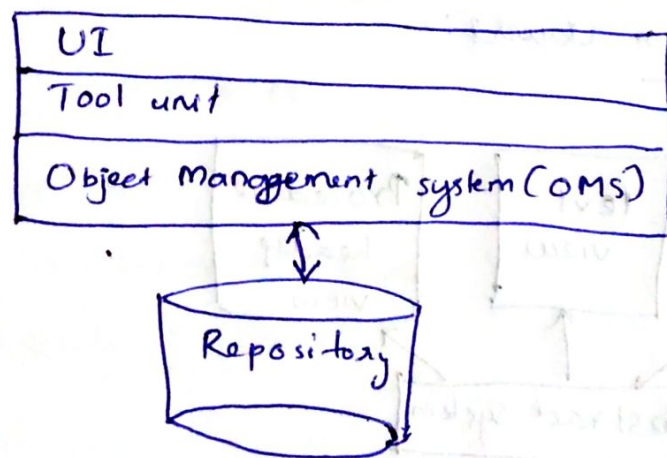 UI
Tool unit
Object Management system (OMS)
Repository